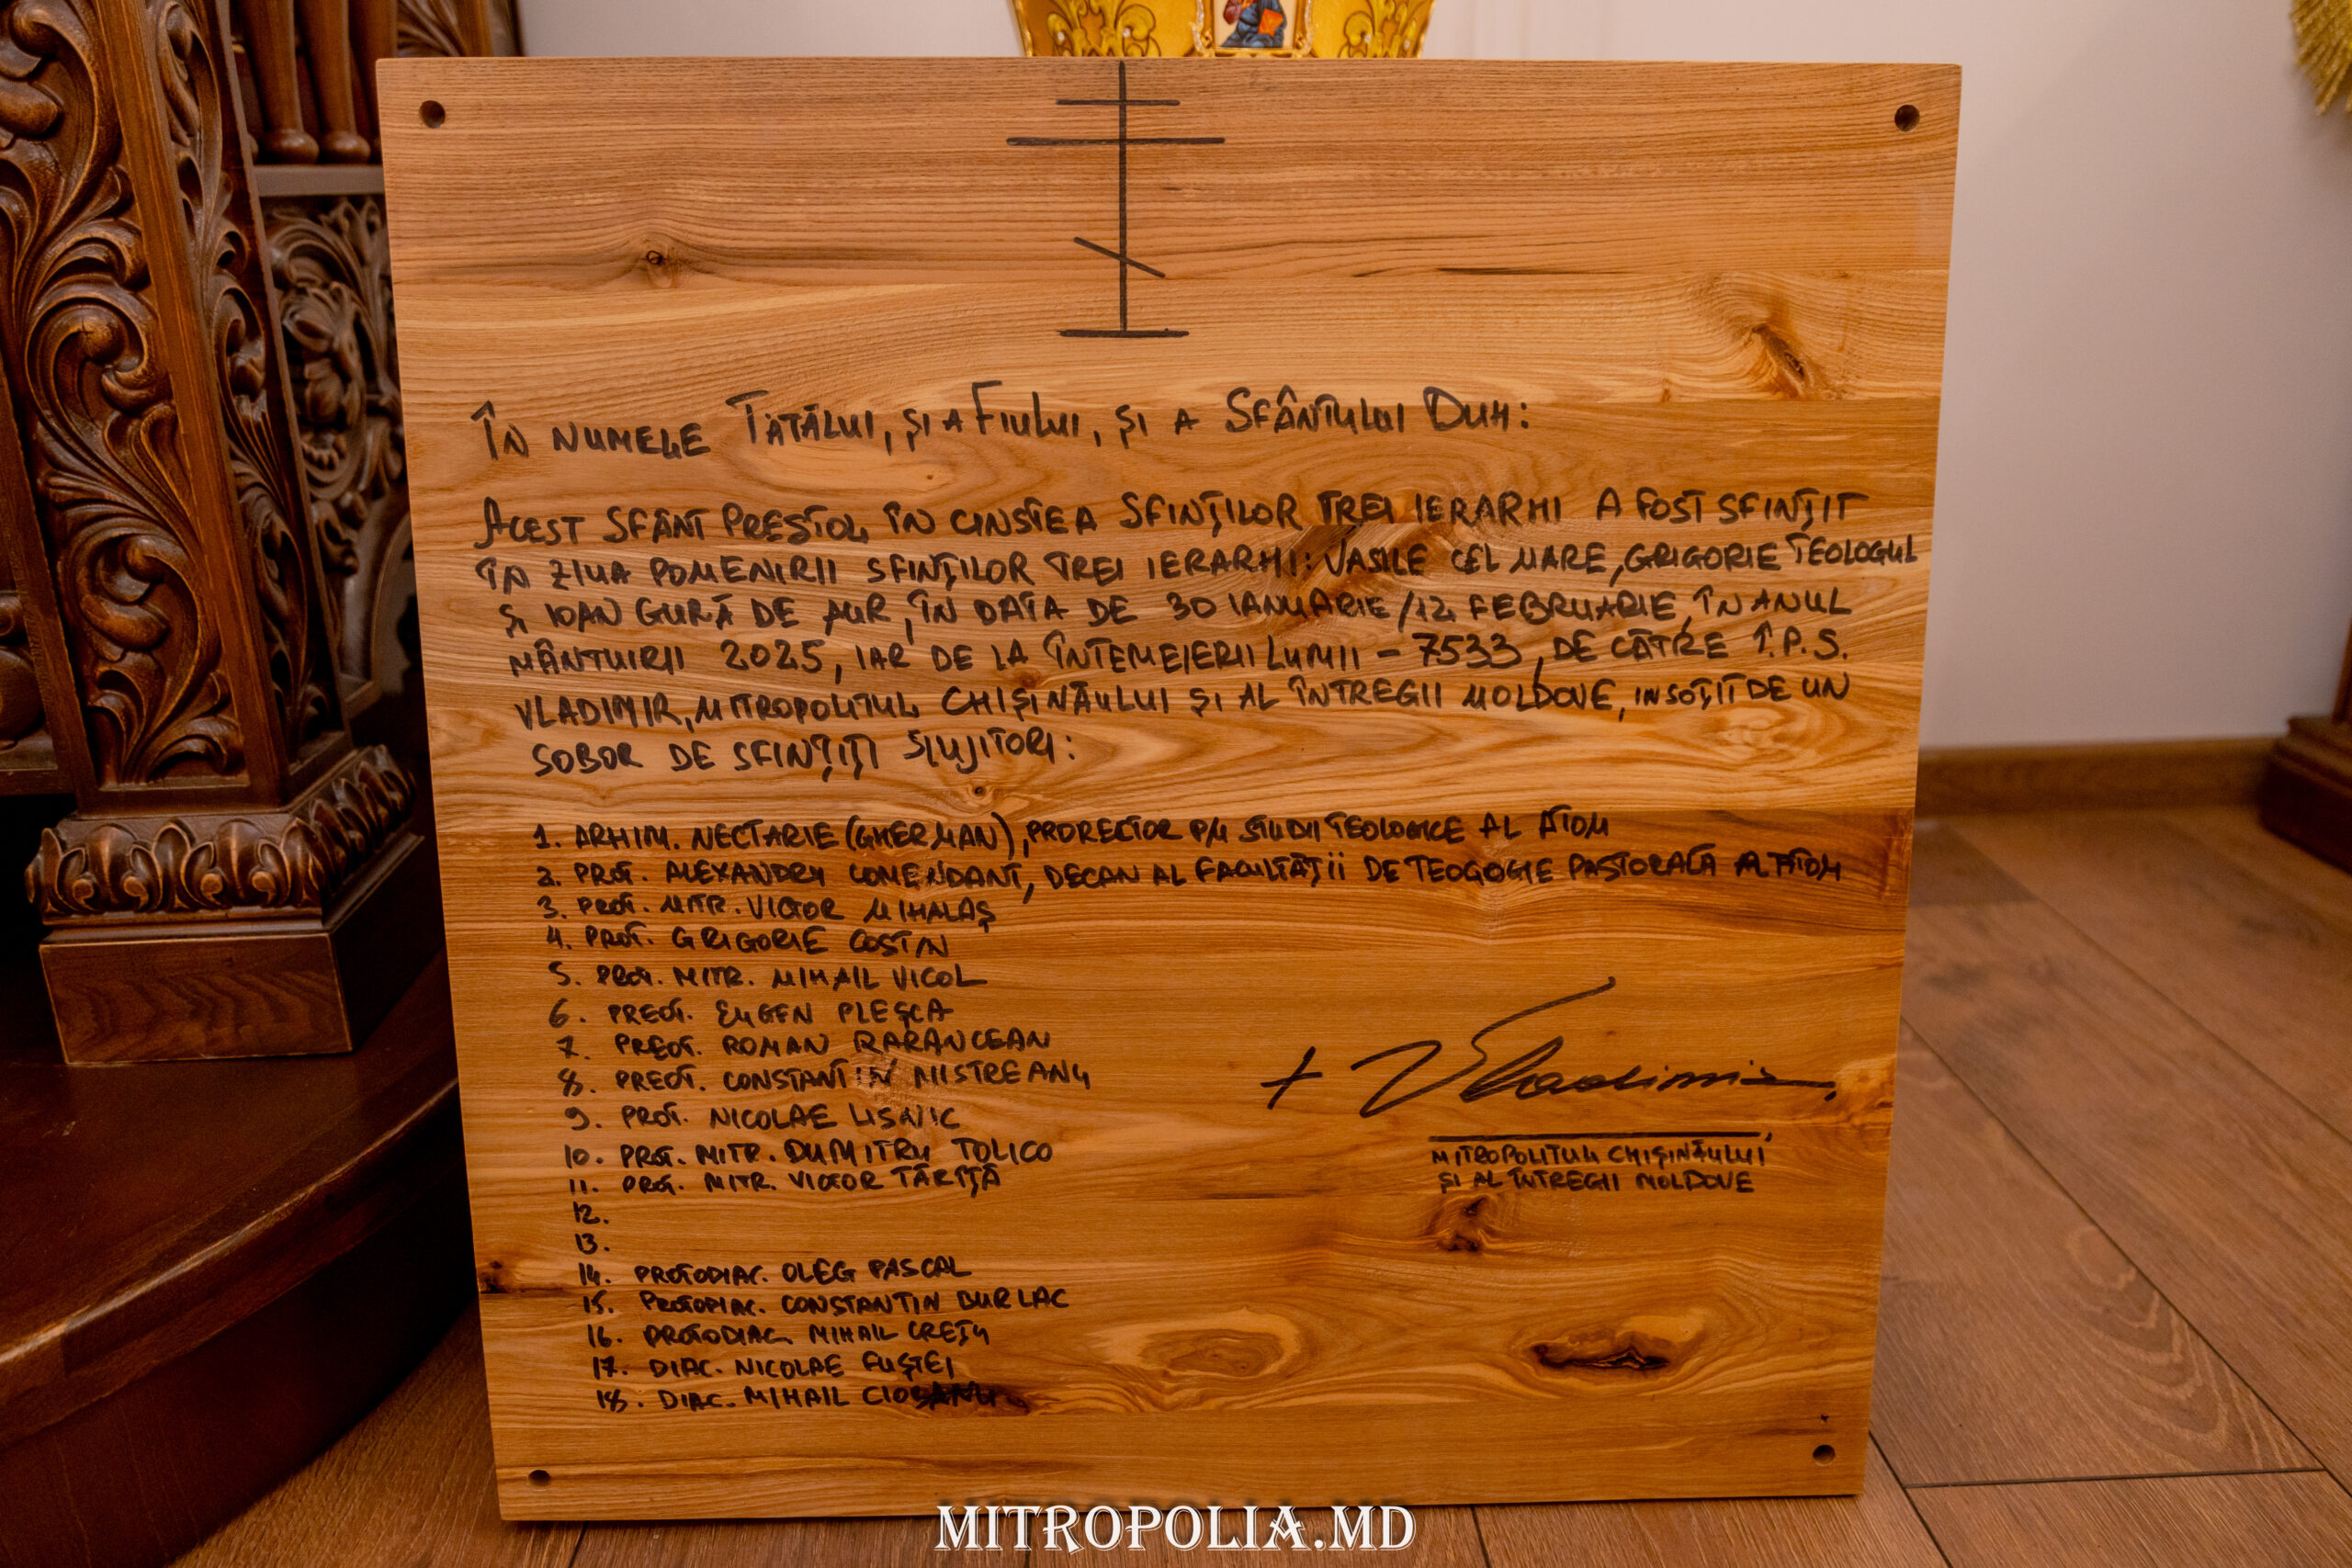 În numele Tatălui, și a Fiului, și a Sfântului Duh:
Acest Sfânt Prestol în cinstea Sfinților Trei Ierarhi a fost sfințit
în ziua pomenirii Sfinților Trei Ierarhi: Vasile cel Mare, Grigorie Teologul
și Ioan Gură de Aur, în data de 30 ianuarie/12 februarie, în anul
mântuirii 2025, iar de la întemeierii lumii – 7533, de către Î.P.S.
Vladimir, Mitropolitul Chișinăului și al întregii Moldove, insoțit de un
sobor de sfințiți slujitori:
1. Arhim. Nectarie (Gherman), prorector p/u studii teologice al ATOM
2. Prot. Alexandru Comendant, decan al Facultății de Teogogie Pastorală al ATOM
3. Prot. Mitr. Victor Mihalaș
4. Prot. Grigorie Costin
5. Prot. Mitr. Mihail Vicol
6. Preot. Eugen Pleșca
7. Preot. Roman Rarancean
8. Preot. Constantin Mistreanu
9. Prot. Nicolae Lisnic
10. Prot. Mitr. Dumitru Tolico
11. Prot. Mitr. Victor Tărîță
12.
13.
14. Protodiac. Oleg Pascal
15. Protodiac. Constantin Burlac
16. Protodiac. Mihail Crețu
17. Diac. Nicolae Fuștei
18. Diac. Mihail Ciobanu
+ Vladimir
Mitropolitul Chișinăului,
și al întregii Moldove
MITROPOLIA.MD